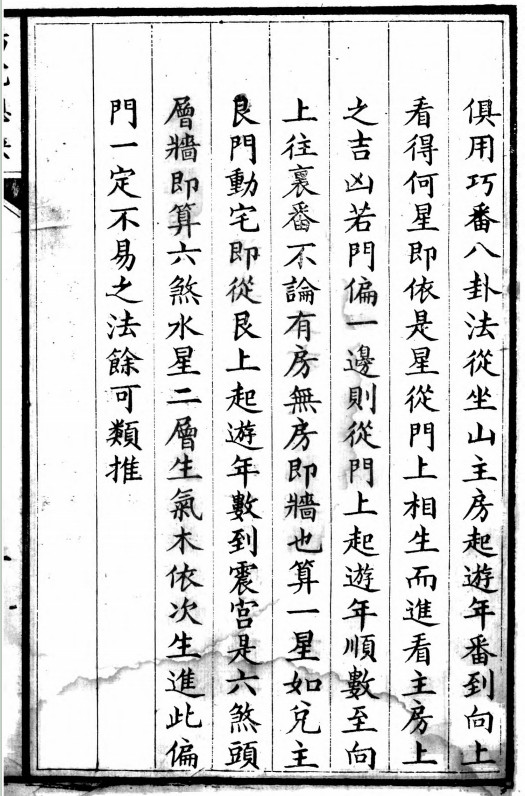 俱用巧番八卦法從坐山主房起遊年番到向上
看得何星即依是星從門上相生而進看主房上
之吉凶若門偏一邊則從門上起遊年順數至向
上往裏番不論有房無房即牆也算一星如兌主
艮門動宅即從艮上起遊年數到震宮是六煞頭
層牆即算六煞水星二層生氣木依次生進此偏
門一定不易之法餘可類推